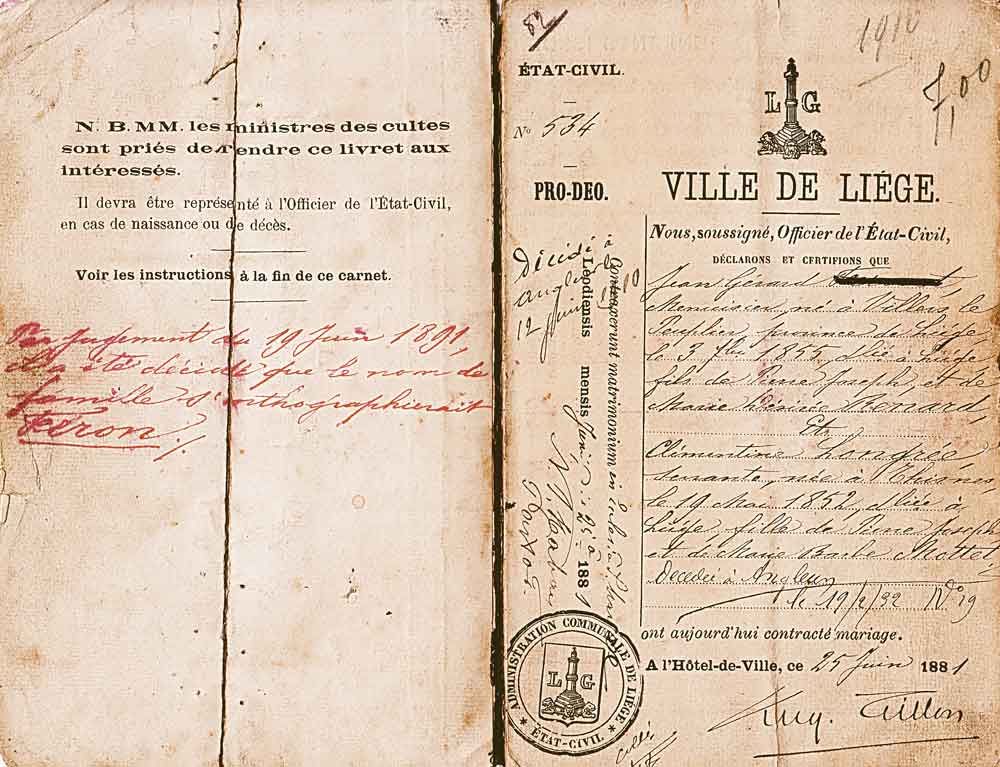 N. B. MM. les ministres des cultes
sont priés de rendre ce livret aux
intéressés.
Il devra être représenté à l'Officier de l'État-Civil,
en cas de naissance ou de décès.
Voir les instructions à la fin de ce carnet.
Par jugement du 19 Juin 1891,
il a été décidé que le nom de
famille s'orthographierait
Feron
82
1910
7,00
ÉTAT-CIVIL.
L G
No 534
PRO-DEO.
VILLE DE LIÉGE.
Nous, soussigné, Officier de l'État-Civil,
DÉCLARONS ET CERTIFIONS QUE
Jean Gérard
Menuisier, né à Villers le
Peuplier province de Liége
le 3 1855 dlié à Liége
fils de Pierre Joseph et de
Marie Désirée Renard
Et
Clémentine Londrée
servante, née à Thisnes,
le 19 Mai 1852, dliée à
Liége, fille de Pierre Joseph
et de Marie Barbe Mottet
Décédée à Angleur
le 19/2/32 No 19
ont aujourd'hui contracté mariage.
A l'Hôtel-de-Ville, ce 25 Juin 1881
Décédé à
Angleur
12 Juin 1910
Contraxerunt matrimonium in
Leodiensis mensis Junii die 25a 1881
ADMINISTRATION COMMUNALE DE LIÉGE
L G
ÉTAT-CIVIL